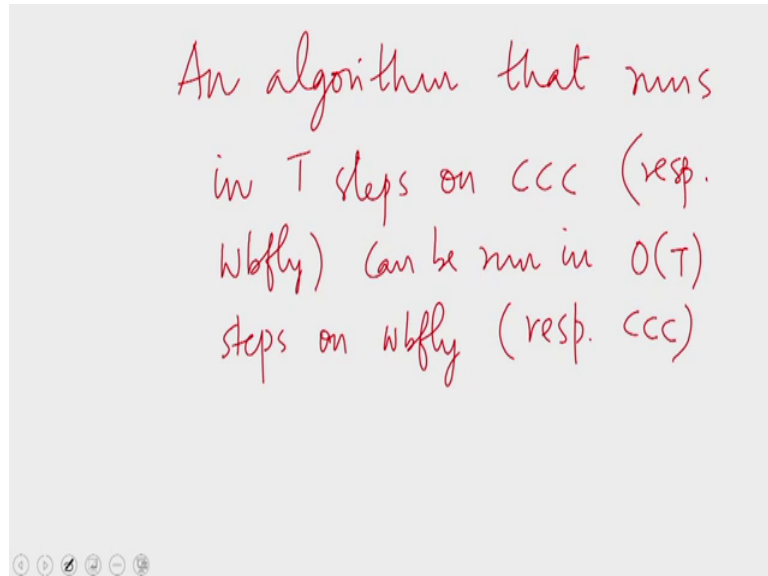 An algorithm that runs
in T steps on CCC (resp.
Wbfly) can be run in O(T)
steps on wbfly (resp. CCC)